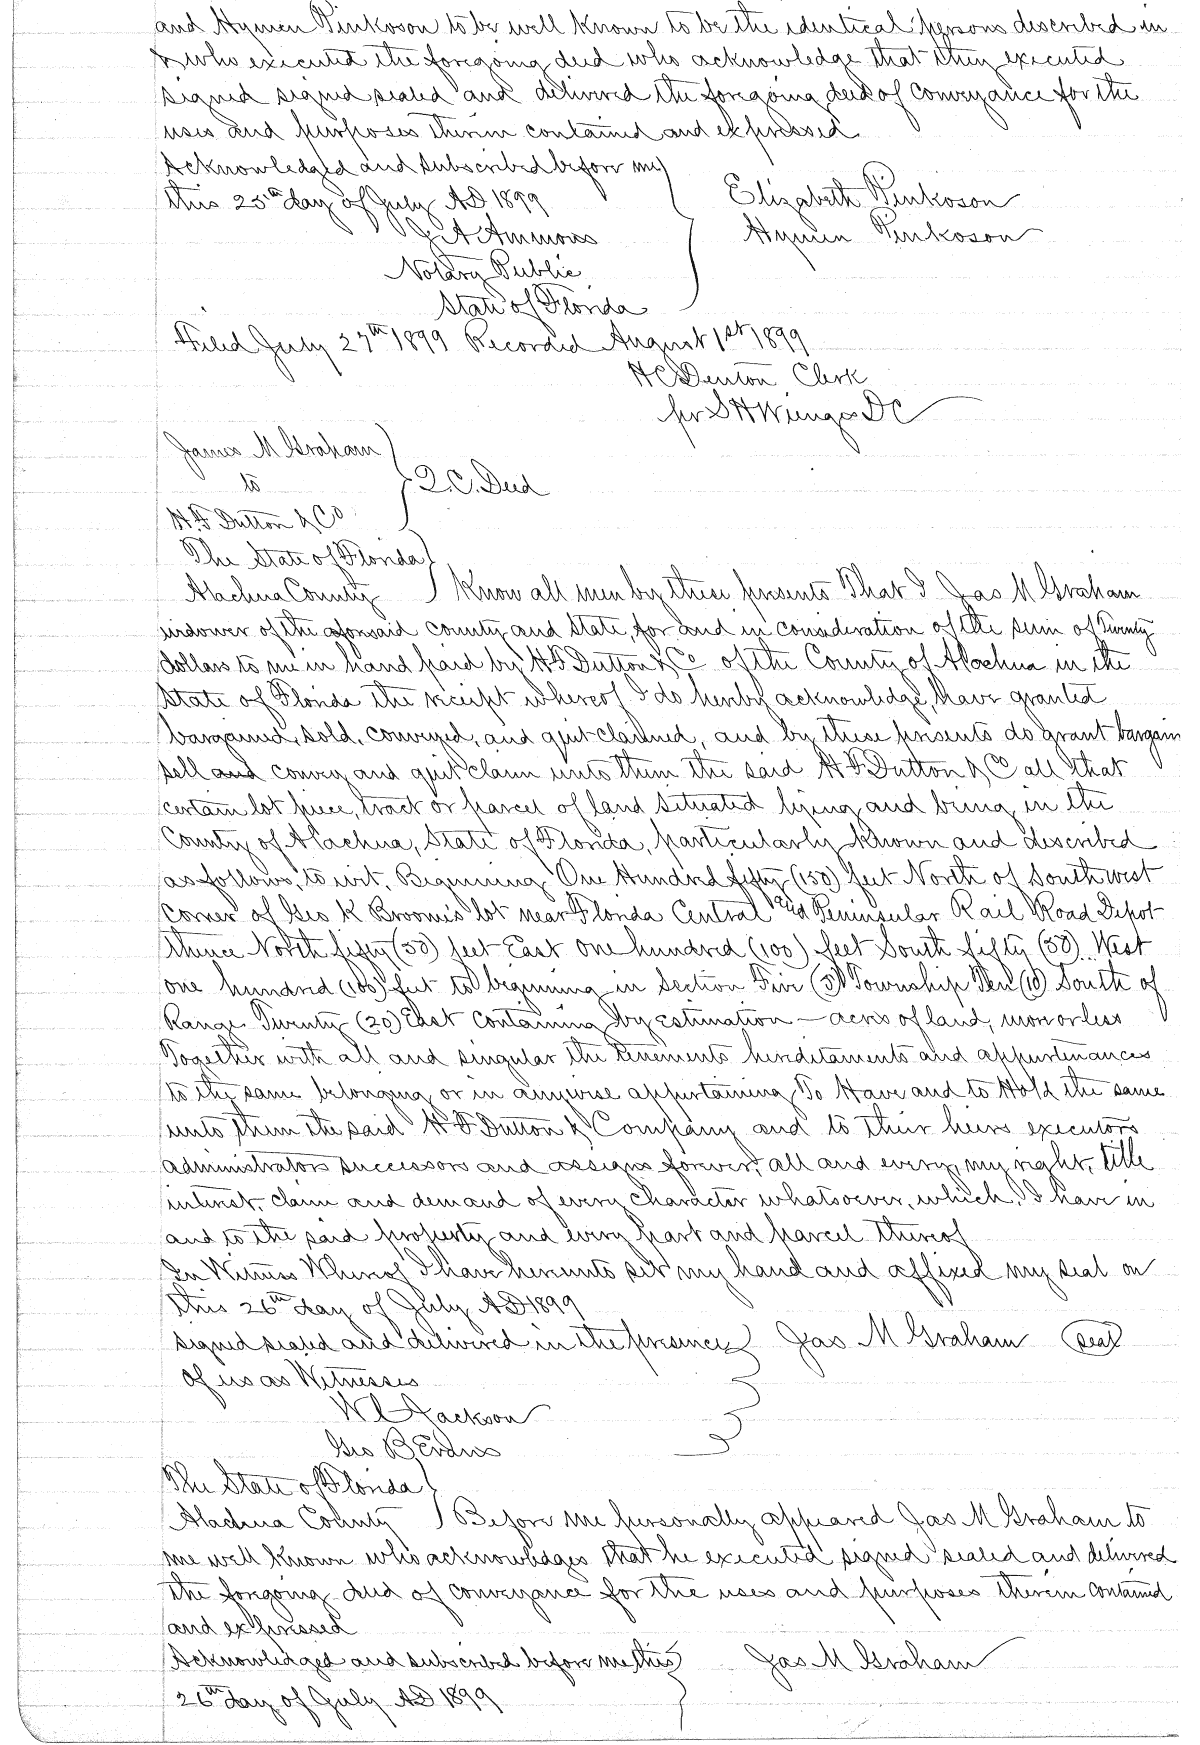 and Hymen Pinkoson to be well known to be the identical persons described in
& who executed the foregoing deed who acknowledge that they executed
signed signed sealed and delivered the foregoing deed of conveyance for the
uses and purposes therein contained and expressed
Acknowledged and subscribed before me
this 25th day of July AD 1899
Elizabeth Pinkoson
J A Ammons
Hymen Pinkoson
Notary Public
State of Florida
Filed July 27th 1899 Recorded August 1st 1899
H C Denton Clerk
per S H Wienges DC
James M Graham
to
Q.C. Deed
H. F Dutton & Co
The State of Florida
Alachua County Know all men by these presents That I Jas M Graham
widower of the aforesaid county and State, for and in consideration of the sum of Twenty
dollars to me in hand paid by H F Dutton & Co of the County of Alachua in the
State of Florida the receipt whereof I do hereby acknowledge, have granted
bargained, sold, conveyed, and quit claimed, and by these presents do grant bargain
sell and convey and quit claim unto them the said H F Dutton & Co all that
certain lot piece, tract or parcel of land situated lying and being in the
County of Alachua, State of Florida, particularly known and described
as follows, to wit, Beginning One Hundred fifty (150) feet North of South west
corner of Geo K Broome's lot near Florida Central and Peninsular Rail Road Depot
thence North fifty (50) feet East one hundred (100) feet South fifty (50) West
one hundred (100) feet to beginning in Section Five (5) Township Ten (10) South of
Range Twenty (20) East containing by estimation — acres of land, more or less
Together with all and singular the tenements hereditaments and appurtenances
to the same belonging or in anywise appertaining To Have and to Hold the same
unto them the said H F Dutton & Company and to their heirs executors
administrators successors and assigns forever, all and every, my right, title
interest, claim and demand of every character whatsoever, which, I have in
and to the said property and every part and parcel thereof
In Witness Whereof I have hereunto set my hand and affixed my seal on
this 26th day of July AD 1899
signed sealed and delivered in the presence Jas M Graham (seal)
of us as Witnesses
W L Jackson
Geo B
The State of Florida
Alachua County Before me personally appeared Jas M Graham to
me well known who acknowledges that he executed signed sealed and delivered
the forgoing deed of conveyance for the uses and purposes therein contained
and expressed
Acknowledged and subscribed before me this Jas M Graham
26th day of July AD 1899